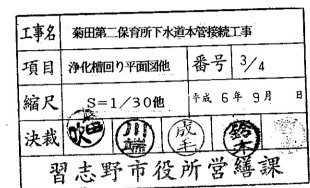 工事名 菊田第二保育所下水道本管接続工事
項目 浄化槽回り平面図他 番号 3/4
縮尺 S=1/30他 平成 6年 9月 日
決裁 吹田 川端 成毛 鈴木
習志野市役所営繕課